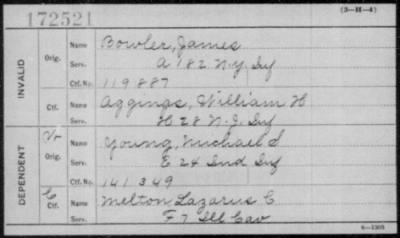 172521
(3—H—4)
INVALID
Orig.
Name Bowler, James
Serv. A 182 N.Y. Inf
Ctf. No. 119887
Ctf.
Name Aggings, William H
Serv. H 28 N.J. Inf
DEPENDENT
Orig.
Name Young, Michael S
Serv. E 24 Ind Inf
Ctf. No. 141349
C
Ctf.
Name Melton, Lazarus C.
Serv. F 7 Ill Cav